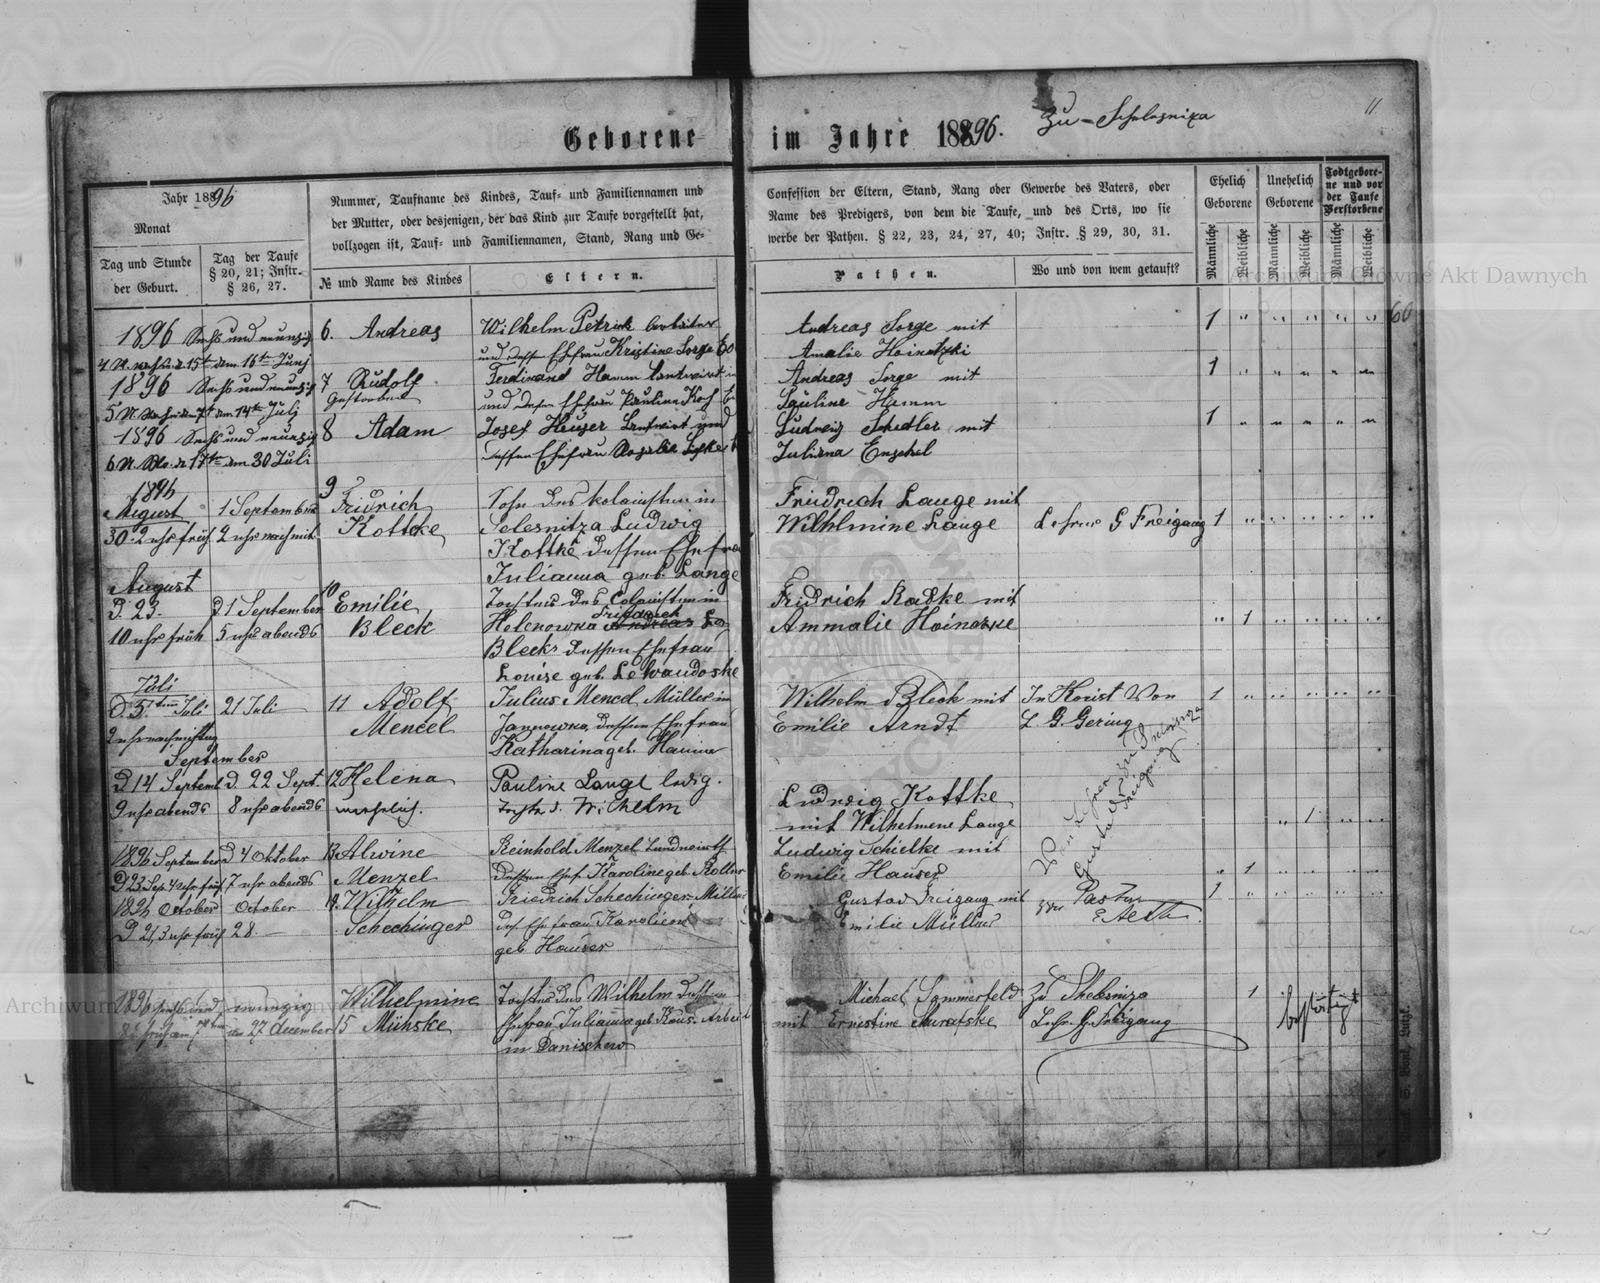 Geborene im Jahre 1896. Zu Schelesnixa
11
Jahr 1896
Monat
Tag und Stunde der Geburt.
Tag der Taufe § 20, 21; Instr. § 26, 27.
Nummer, Taufname des Kindes, Tauf- und Familiennamen und
der Mutter, oder desjenigen, der das Kind zur Taufe vorgestellt hat,
vollzogen ist, Tauf- und Familiennamen, Stand, Rang und Ge-
№ und Name des Kindes
Eltern.
Confession der Eltern, Stand, Rang oder Gewerbe des Vaters, oder
Name des Predigers, von dem die Taufe, und des Orts, wo sie
werbe der Pathen. § 22, 23, 24, 27, 40; Instr. § 29, 30, 31.
Pathen.
Wo und von wem getauft?
Ehelich Geborene
Unehelich Geborene
Todtgeborene und vor der Taufe Verstorbene
Männliche Weibliche Männliche Weibliche Männliche Weibliche
Archiwum Główne Akt Dawnych
1896 Sechs und neunzig 6. Andreas Wilhelm Petrik Arbeiter Andreas Sorge mit 1 60
15t dem 16ten Junj und dessen Ehefrau Kristine Sorge Amalie Hoinatzki
1896 Sechs und neunzig 7 Rudolf Ferdinand Hamm Lantwirt in Andreas Sorge mit 1
Gestorben
14ten Julj und dessen Ehefrau Pauline Koch Pauline Hamm
1896 Sechs und neunzig 8 Adam Josef Heuser Lantwirt und Ludwig Schedler mit 1
17te am 30 Juli dessen Ehefrau Rosalie Juliana Enschel
1896 9
August 1 September Fridrich Sohn des Kolonisten in Freidrich Lange mit
30. 2 uhr früh 2 uhr nachmit. Kottke Selesnitza Ludwig Wilhlmine Lange Lehrer G Freigang 1
Kottke dessen Ehefrau
Julianna geb. Lange
August
D. 23. D. 1 September 10 Emilie Tochter des Colonisten in Fridrich Radke mit
10 uhr früh 5 uhr abends Bleck Helenowka Andreas Friedrich Ammalie Hoinazke 1
Bleck dessen Ehefrau
Louise geb. Lewandoske
Juli
D. 5. ten Juli 21 Juli 11 Adolf Julius Mencel Müller in Wilhelm Bleck mit In Konist Von 1
2 uhr nachmittag Mencel Janowka, dessen Ehefrau Emilie Arndt L. G. Gering
September Katharina geb. Hamm
D 14 Septemb D. 22 Sept. 12 Helena Pauline Lange ledig. Ludwig Kottke
9 uhr abends 8 uhr abends unehelich. Tocht. d. Wilhelm mit Wilhelmene Lange 1
Von Lehrer zu
Gustav Freigang
1896 September D 4 Oktober 13 Alwine Reinhold Menzel Landwirth Ludwig Schielke mit
D 23 Sep. 4 uhr früh 7 uhr abends Menzel dessen Ehef. Karoline geb. Emilie Hauser 1
1896 October October 14. Wilhelm Friedrich Schechinger Müller Gustav Freigang mit Pastor 1
D 21, 3 uhr früh 28 Schechinger des. Ehefrau Karoliene Emilie Müller
geb. Hauser
1896 Sechs und neunzig Wilhelmine Tochter des Wilhelm dessen Michael Sommerfeld Zu Shelesniza 1
27 december 15 Mühske Ehefrau Julianna geb. Arbeit mit Ernestine Lehr. G. Freigang
in Danischew
Archiwum Główne Akt Dawnych